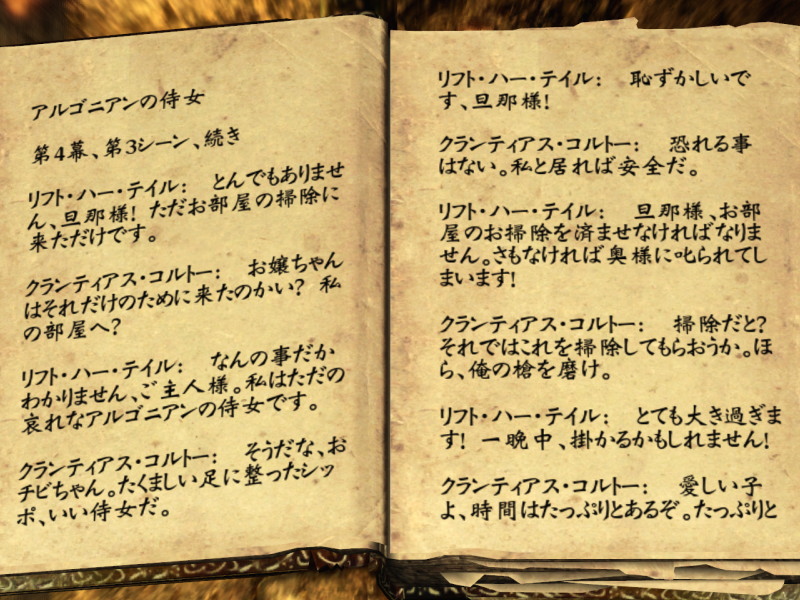 アルゴニアンの侍女
第4幕、第3シーン、続き
リフト・ハー・テイル： とんでもありませ
ん、旦那様! ただお部屋の掃除に
来ただけです。
クランティアス・コルトー： お嬢ちゃん
はそれだけのために来たのかい? 私
の部屋へ?
リフト・ハー・テイル： なんの事だか
わかりません、ご主人様。私はただの
哀れなアルゴニアンの侍女です。
クランティアス・コルトー： そうだな、お
チビちゃん。たくましい足に整ったシッ
ポ、いい侍女だ。
リフト・ハー・テイル： 恥ずかしいで
す、旦那様!
クランティアス・コルトー： 恐れる事
はない。私と居れば安全だ。
リフト・ハー・テイル： 旦那様、お部
屋のお掃除を済ませなければなりま
せん。さもなければ奥様に叱られてし
まいます!
クランティアス・コルトー： 掃除だと?
それではこれを掃除してもらおうか。ほ
ら、俺の槍を磨け。
リフト・ハー・テイル： とても大き過ぎま
す! 一晩中、掛かるかもしれません!
クランティアス・コルトー： 愛しい子
よ、時間はたっぷりとあるぞ。たっぷりと